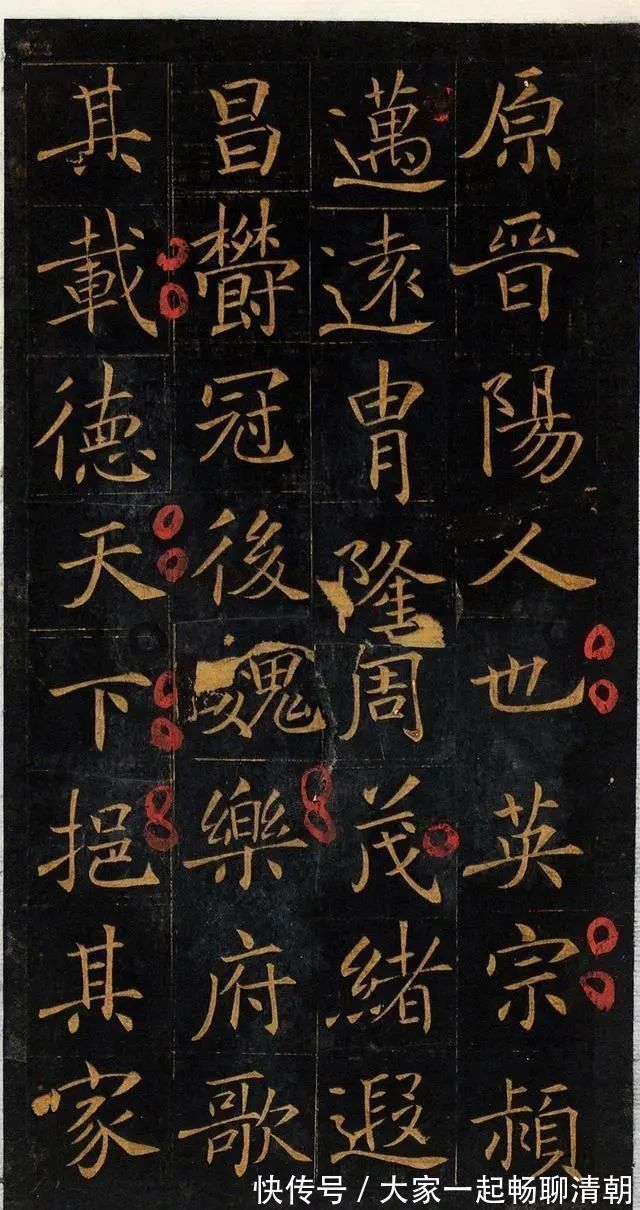 原晉陽人也英宗穎
邁遠冑隆周茂緒遐
昌欝冠後魏樂府歌
其載德天下挹其家
快传号 / 大家一起畅聊清朝